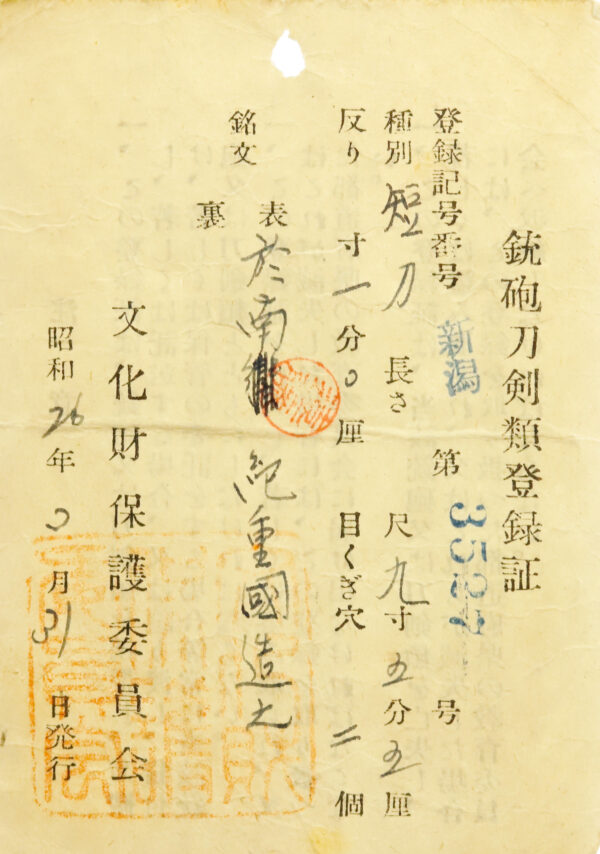 銃砲刀剣類登録証
登録記号番号 新潟 第 号
種別 短刀 長さ 尺九寸五分五厘
反り 寸一分0厘 目くぎ穴 二個
銘文
表 於南 紀重國造之
裏
文化財保護委員会
昭和26年 月31日発行